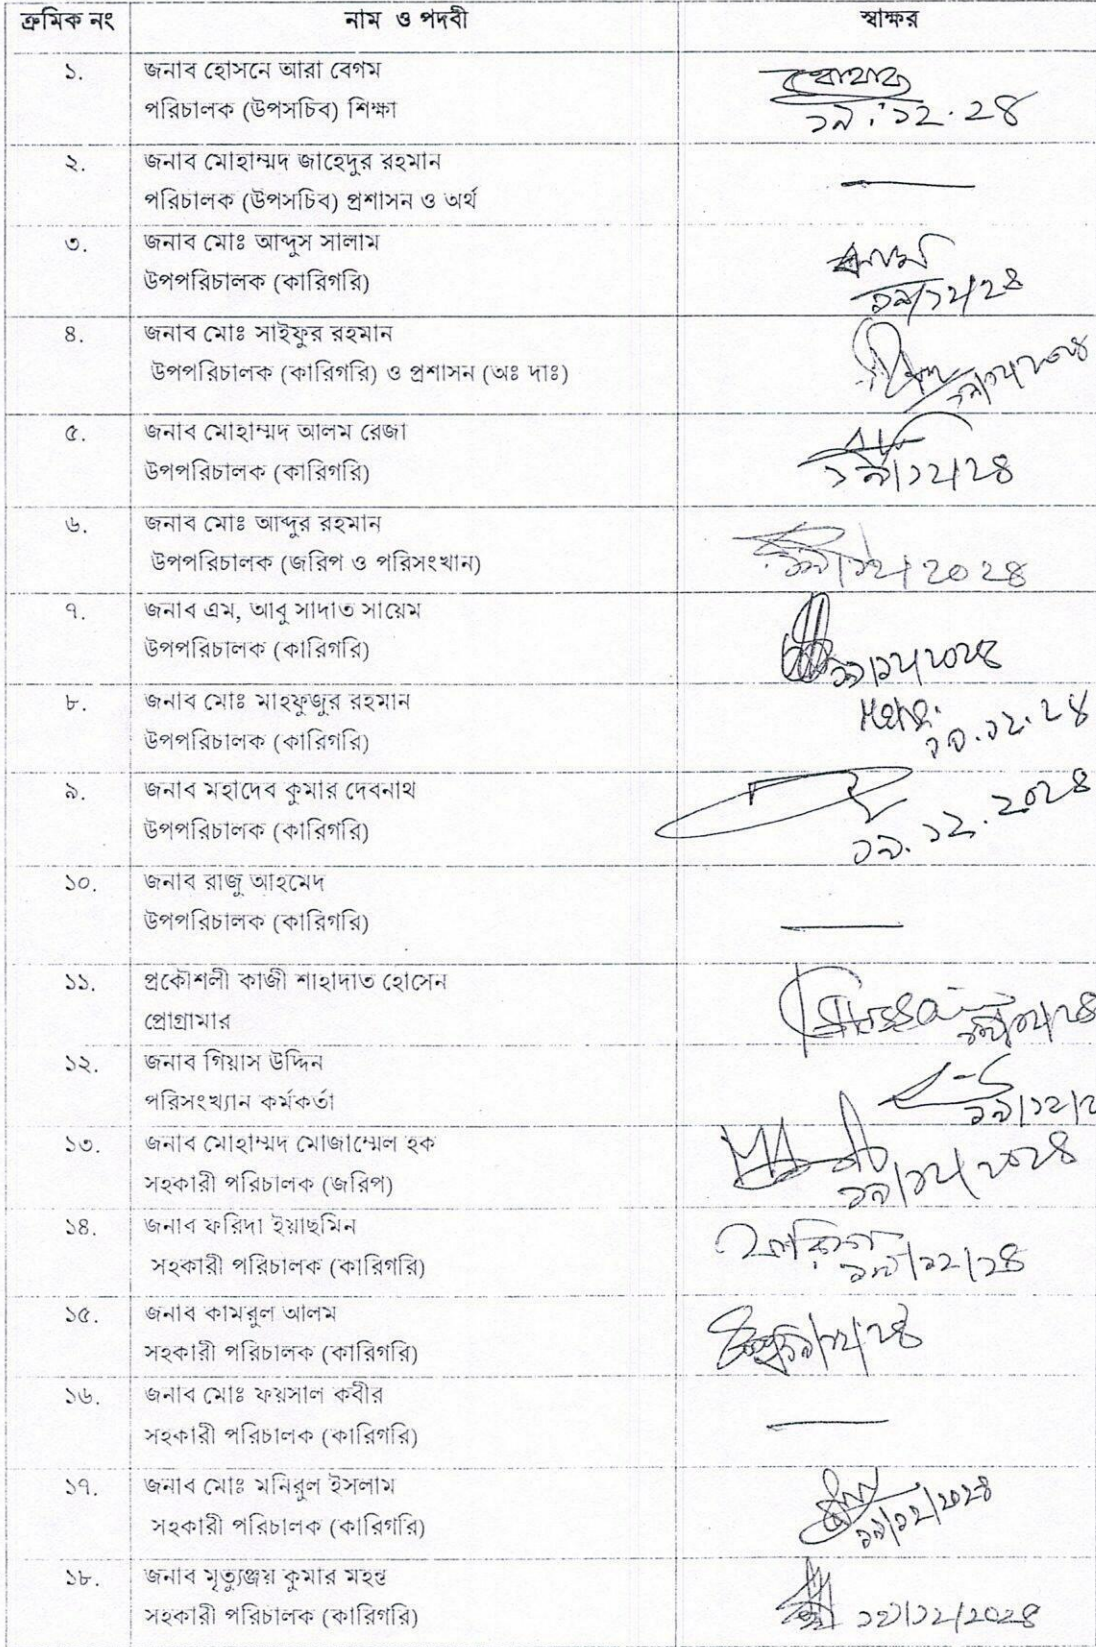 ক্রমিক নং নাম ও পদবী স্বাক্ষর
১. জনাব হোসনে আরা বেগম
পরিচালক (উপসচিব) শিক্ষা
১৯.১২.২৪
২. জনাব মোহাম্মদ জাহেদুর রহমান
পরিচালক (উপসচিব) প্রশাসন ও অর্থ
৩. জনাব মোঃ আব্দুস সালাম
উপপরিচালক (কারিগরি)
১৯/১২/২৪
৪. জনাব মোঃ সাইফুর রহমান
উপপরিচালক (কারিগরি) ও প্রশাসন (অঃ দাঃ)
১৯/১২/২০২৪
৫. জনাব মোহাম্মদ আলম রেজা
উপপরিচালক (কারিগরি)
১৯/১২/২৪
৬. জনাব মোঃ আব্দুর রহমান
উপপরিচালক (জরিপ ও পরিসংখান)
১৯/১২/২০২৪
৭. জনাব এম, আবু সাদাত সায়েম
উপপরিচালক (কারিগরি)
১৯/১২/২০২৪
৮. জনাব মোঃ মাহফুজুর রহমান
উপপরিচালক (কারিগরি)
১৯.১২.২৪
৯. জনাব মহাদেব কুমার দেবনাথ
উপপরিচালক (কারিগরি)
১৯.১২.২০২৪
১০. জনাব রাজু আহমেদ
উপপরিচালক (কারিগরি)
১১. প্রকৌশলী কাজী শাহাদাত হোসেন
প্রোগ্রামার
১৯/১২/২৪
১২. জনাব গিয়াস উদ্দিন
পরিসংখ্যান কর্মকর্তা
১৯/১২/২
১৩. জনাব মোহাম্মদ মোজাম্মেল হক
সহকারী পরিচালক (জরিপ)
১৯/১২/২০২৪
১৪. জনাব ফরিদা ইয়াছমিন
সহকারী পরিচালক (কারিগরি)
ফরিদা
১৯/১২/২৪
১৫. জনাব কামরুল আলম
সহকারী পরিচালক (কারিগরি)
১৯/১২/২৪
১৬. জনাব মোঃ ফয়সাল কবীর
সহকারী পরিচালক (কারিগরি)
১৭. জনাব মোঃ মনিরুল ইসলাম
সহকারী পরিচালক (কারিগরি)
১৯/১২/২০২৪
১৮. জনাব মৃত্যুঞ্জয় কুমার মহন্ত
সহকারী পরিচালক (কারিগরি)
১৯/১২/২০২৪